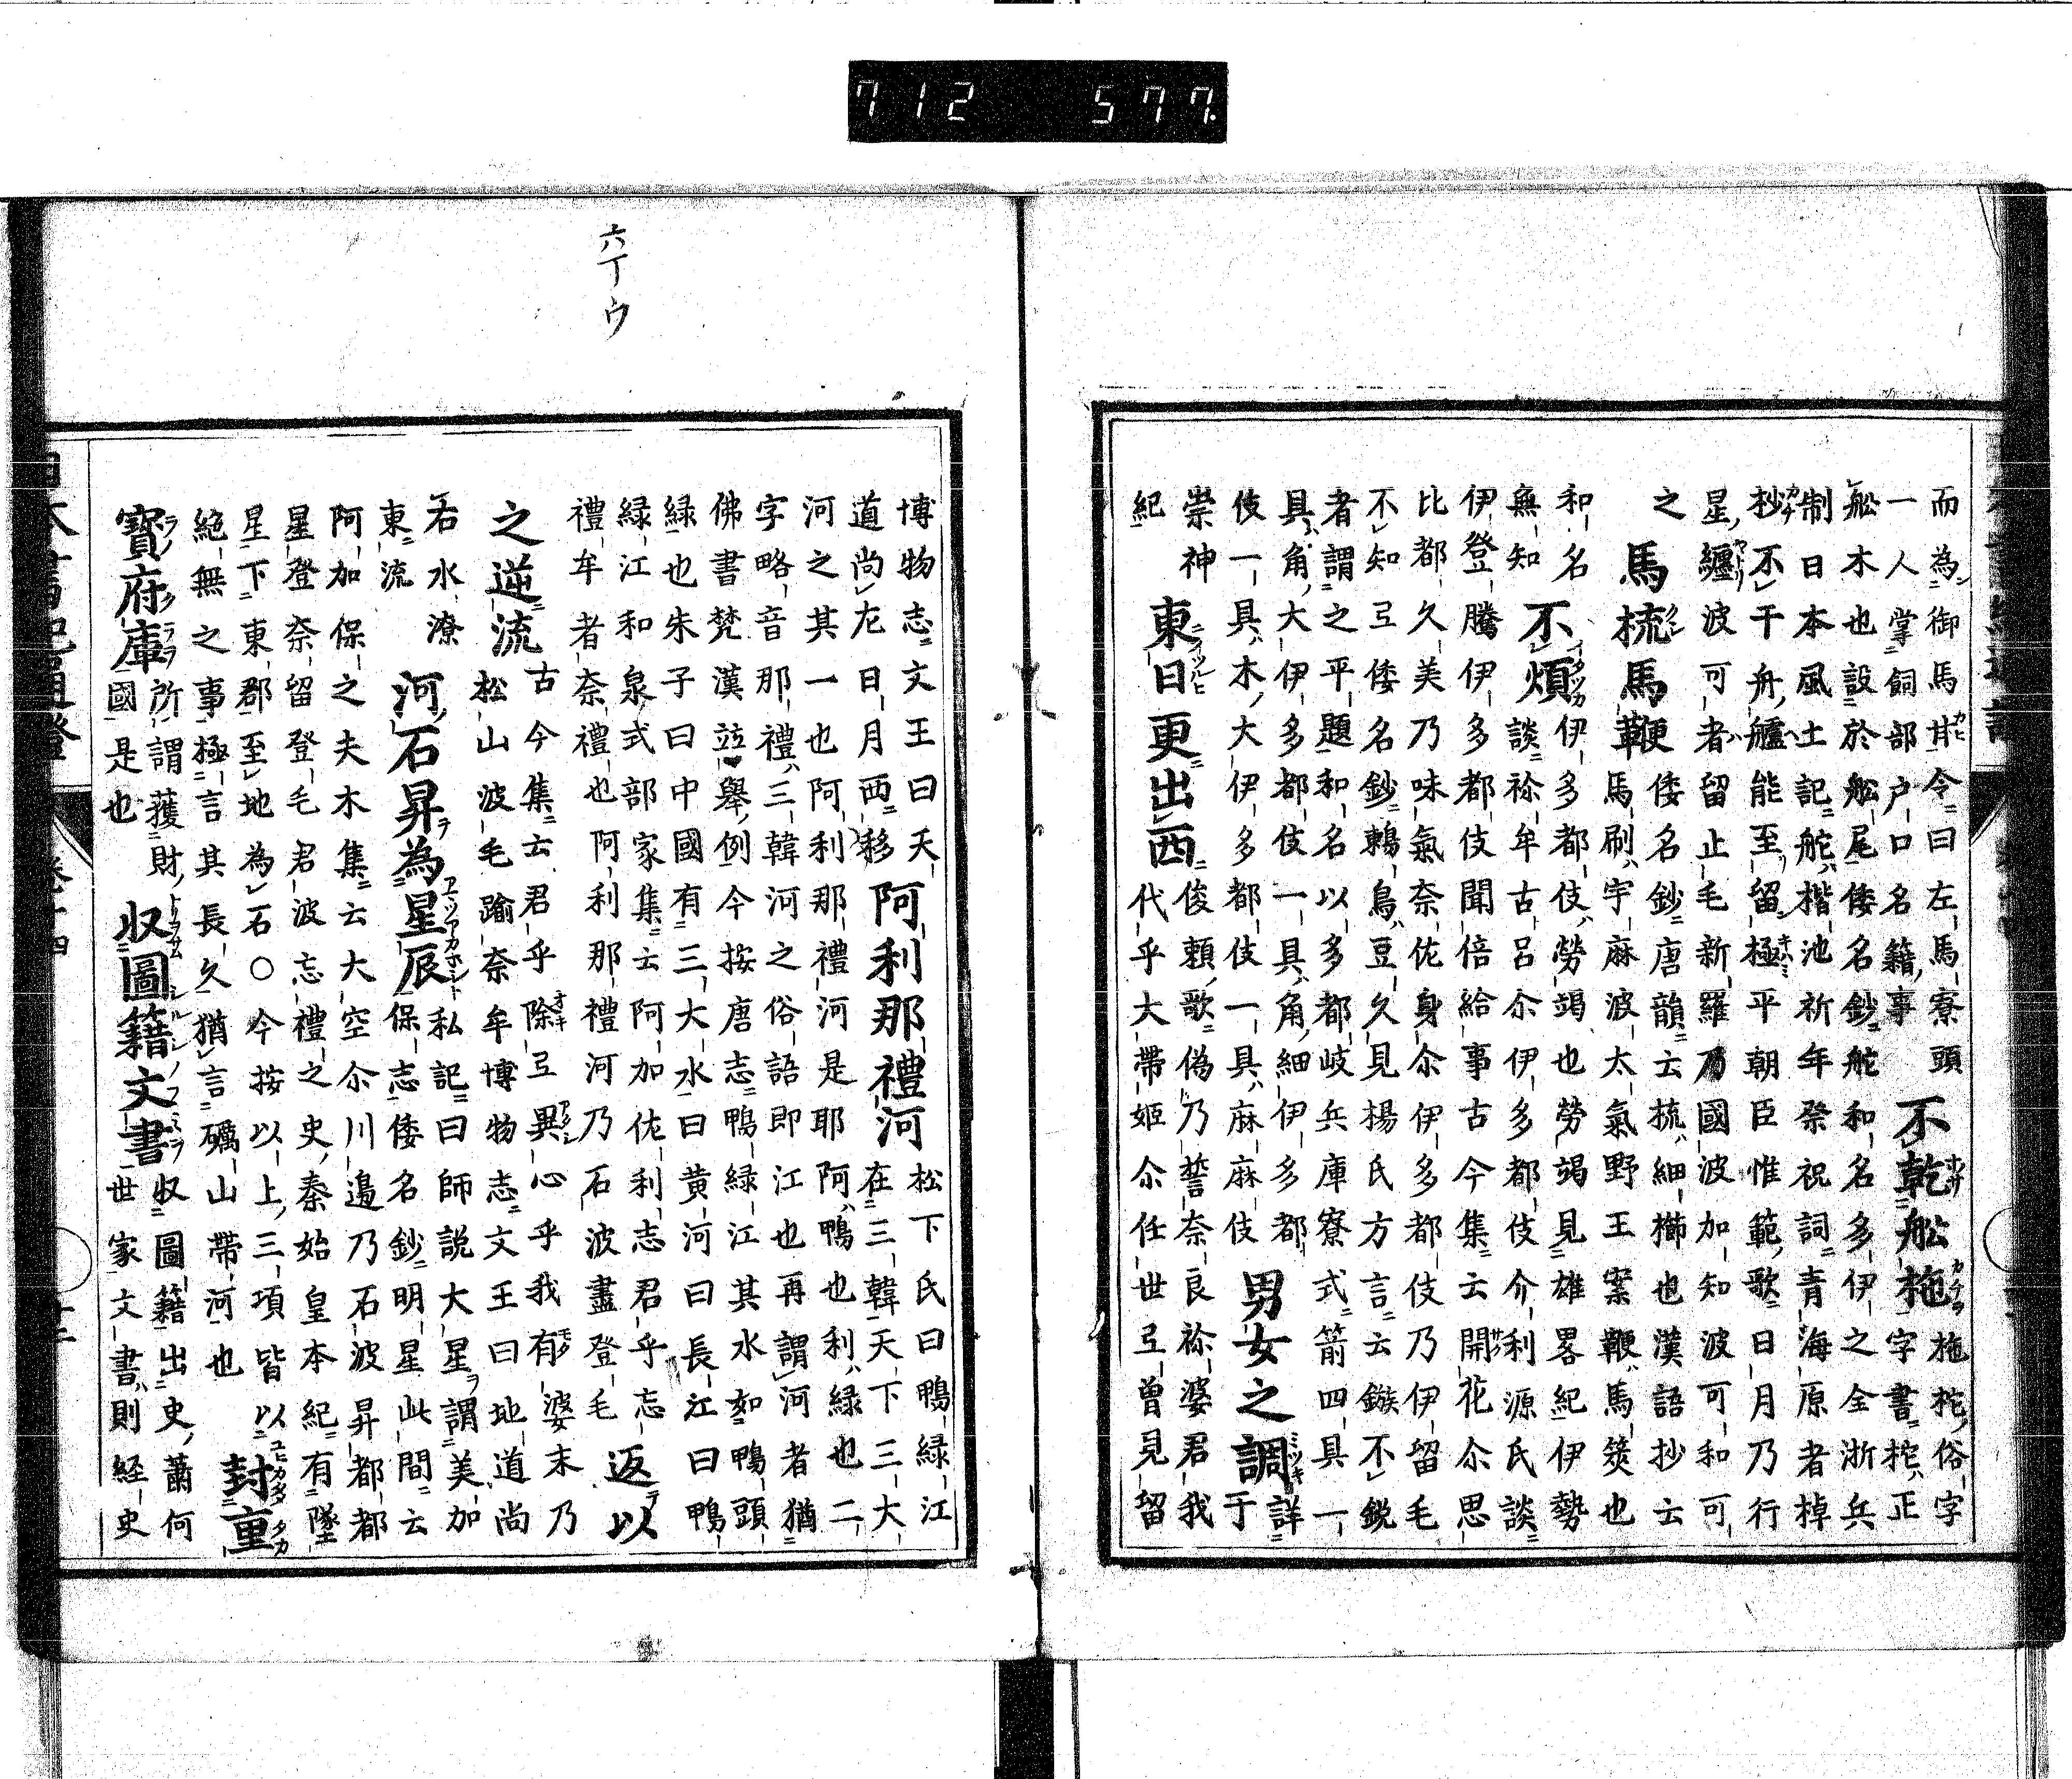 712 577.
而為御馬甘令曰左馬寮頭
一人掌飼部戸口名籍事 不乾舩柂 柂柁俗字
舩木也設於舩尾倭名鈔舵和名多伊之全浙兵
字書柁正
制日本風土記舵楷池祈年祭祝詞青海原者棹
柂不干舟艫能至留極平朝臣惟範歌日月乃行
星纏波可者留止毛新羅乃國波加知波可和可
之 馬梳馬鞭 倭名鈔唐韻云梳細櫛也漢語抄云
馬刷宇麻波太氣野王案鞭馬筴也
和名 不煩 伊多都伎勞竭也勞竭見雄畧紀伊勢
無知 談祢牟古呂尒伊多都伎介利源氏談
伊登騰伊多都伎聞倍給事古今集云開花尒思
比都久美乃味氣奈佐身尒伊多都伎乃伊留毛
不知弖倭名鈔鶇鳥豆久見楊氏方言云鏃不鋭
者謂之平題和名以多都岐兵庫寮式箭四具一
具角大伊多都伎一具角細伊多都
伎一具木大伊多都伎一具麻麻伎 男女之調 詳于
崇神
紀 東日更出西 俊頼歌偽乃誓奈良祢婆君我
代乎大帶姫尒任世弖曽見留
六丁ウ
博物志文王曰天
道尚左日月西移 阿利那禮河 松下氏曰鴨緑江
在三韓天下三大
河之其一也阿利那禮河是耶阿鴨也利緑也二
字略音那禮三韓河之俗語即江也再謂河者猶
佛書梵漢竝舉例今按唐志鴨緑江其水如鴨頭
緑也朱子曰中國有三大水曰黄河曰長江曰鴨
緑江和泉式部家集云阿加佐利志君乎志
禮牟者奈禮也阿利那禮河乃石波盡登毛 返以
之逆流 古今集云君乎除弖異心乎我有婆末乃
松山波毛踰奈牟博物志文王曰地道尚
右水潦
東流 河石昇為星辰 私記曰師説大星謂美加
保志倭名鈔明星此間云
阿加保之夫木集云大空尒川邉乃石波昇都都
星登奈留登毛君波忘禮之史秦始皇本紀有墜
星下東郡至地為石〇今按以上三項皆以
絶無之事極言其長久猶言礪山帶河也 封重
寶府庫 所謂獲財
國是也 収圖籍文書 収圖籍出史蕭何
世家文書則経史